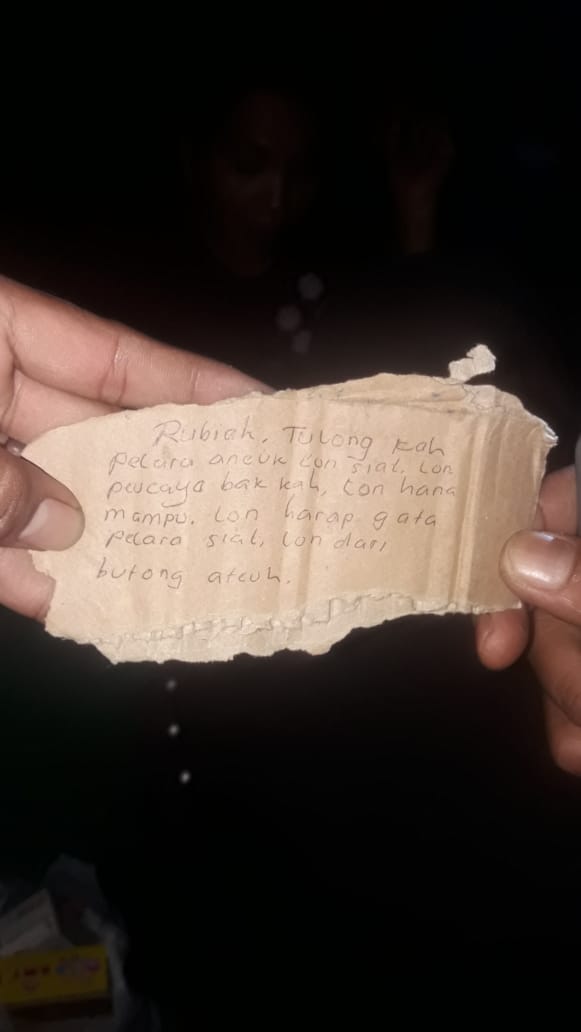 Rubiah, Tulong kah
pelara aneuk lon siat, lon
peucaya bak kah, lon hana
mampu. lon harap gata
pelara siat, lon dari
butong ateuh.